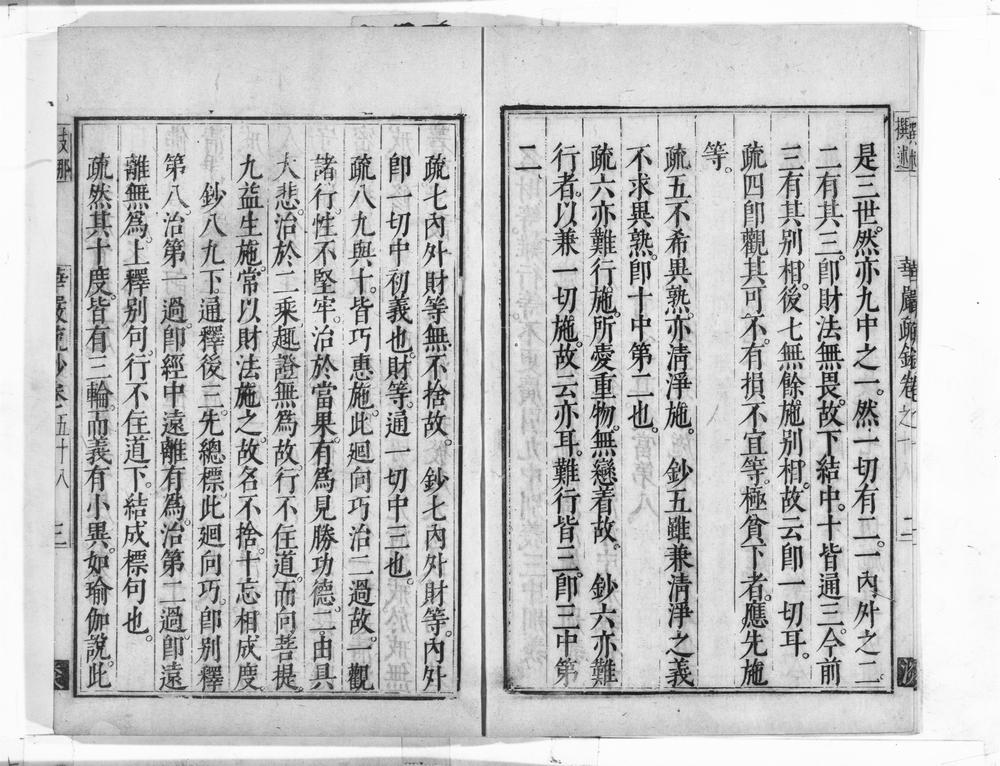 是三世。然亦九中之一。然一切有二。一內外之二。
二有其三。卽財法無畏。故下結中。十皆通三。今前
三有其別相。後七無餘施別相。故云卽一切耳。
疏四卽觀其可不。有損不宜等。極貧下者。應先施
等。
疏五不希異熟。亦清淨施。　鈔五雖兼清淨之義
不求異熟。卽十中第五也。
疏六亦難行施。所愛重物。無戀着故。　鈔六亦難
行者。以兼一切施。故云亦耳。難行皆三。卽三中第
二。
疏七內外財等無不捨故。鈔七內外財等。內外
卽一切中初義也。財等。通一切中三也。
疏八九與十。皆巧惠施。此廻向巧治二過故。一觀
諸行性不堅牢。治於當果。有爲見勝功德。二由具
大悲。治於二乘。趣證無爲故。行不住道。而向菩提。
九益生施。常以財法施之。故名不捨。十忘相成度。
鈔八九下。通釋後三。先總標。此廻向巧。卽別釋
第八。治第一過。卽經中遠離有爲。治第二過。卽遠
離無爲。上釋別句。行不住道下。結成標句也。
疏然其十度。皆有三輪。而義有小異。如瑜伽說。此
撰述
華嚴疏鈔卷之
二
支那
華嚴疏鈔卷五十八
三